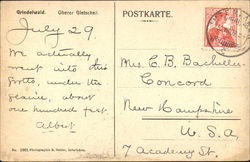 Grindelwald. Oberer Gletscher.
POSTKARTE.
July 29.
We actually
went into this
grotto, under the
glacier, about
one hundred feet
Albert
Mrs. C. B. Bacheller
Concord
New Hampshire
U.S.A.
7 Academy St.